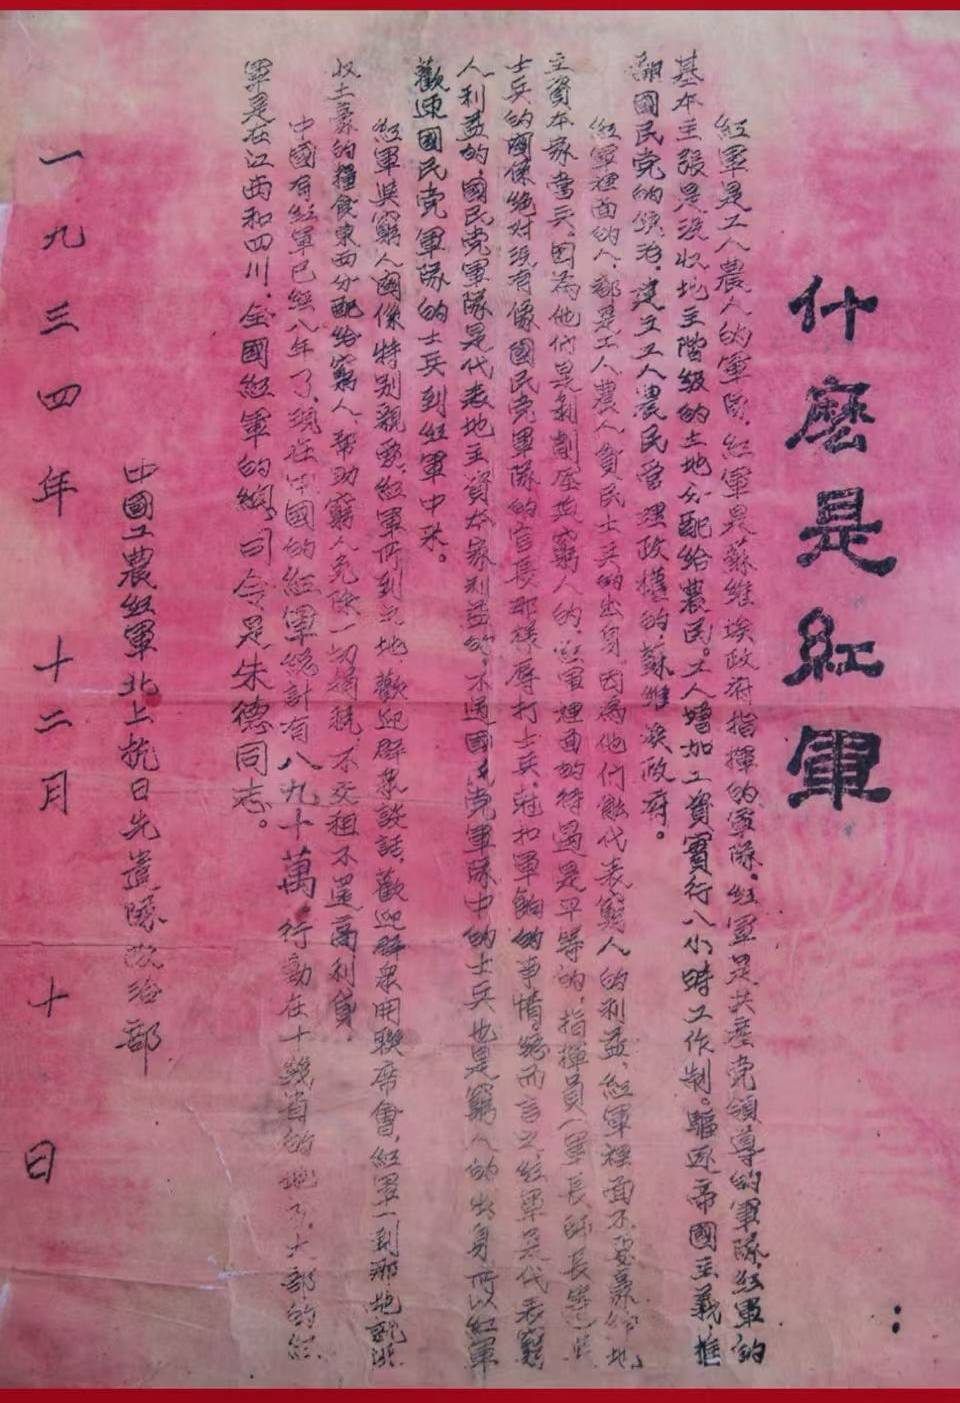 什麼是紅軍
紅軍是工人農人的軍隊，紅軍是蘇維埃政府指揮的軍隊，紅軍是共產党領導的軍隊，紅軍的
基本主張是没收地主階級的土地分配給農民。工人增加工資實行八小時工作制。驅逐帝國主義，推
翻國民党的統治，建立工人農民管理政權的蘇維埃政府。
紅軍裡面的人，都是工人農人貧民士兵的出身，因為他们能代表窮人的利益，紅軍裡面不要豪紳地
主資本家當兵，因為他们是剝削壓迫窮人的，紅軍裡面的待遇是平等的，指揮員（軍長，師長等）與
士兵的関係絶对没有像國民党軍隊的官長那様辱打士兵，尅扣軍餉的事情。總而言之，紅軍是代表窮
人利益的，國民党軍隊是代表地主資本家利益的，不過國民党軍隊中的士兵也是窮人的出身所以紅軍
歡迎國民党軍隊的士兵到紅軍中來。
紅軍與窮人関係特别親密，紅軍所到之地，歡迎群衆談話，歡迎群衆開聯席會，紅軍一到那地就
収土豪的糧食東西分配給窮人，帮助窮人免除一切捐税，不交租不還高利貸，
中國有紅軍已經八年了，現在中國的紅軍總計有八九十萬，行動在十幾省的地方，大部的紅
軍是在江西和四川，全國紅軍的總司令是朱德同志。
中國工農紅軍北上抗日先遣隊政治部
一九三四年 十二月 十 日